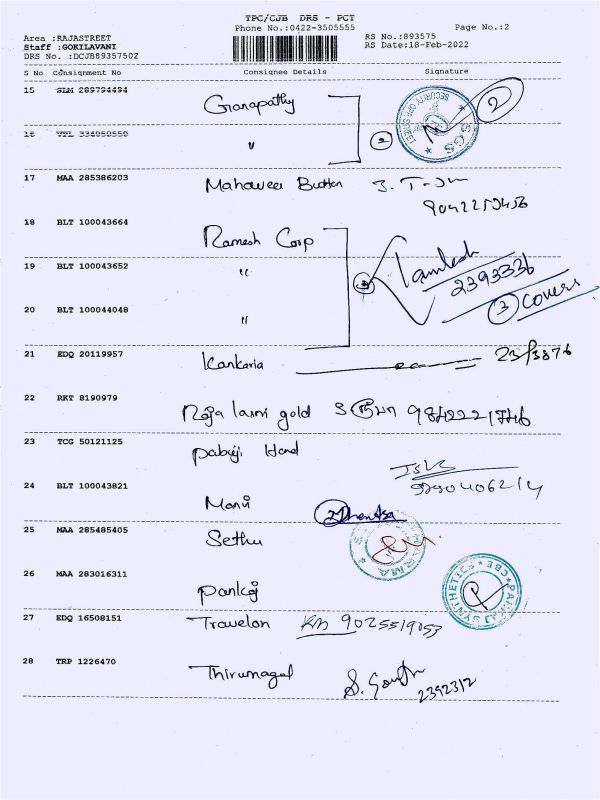 TPC/CJB DRS - PCT
Phone No.:0422-3505555
Page No.:2
Area :RAJASTREET
Staff :GOKILAVANI
DRS No. :DCJB89357502
RS No.:893575
RS Date:18-Feb-2022
S No Consignment No Consignee Details Signature
15 SLM 289794494 Ganapathy 2
16 VDL 334050550 " 2
17 MAA 285386203 Mahaveer Button
9042259456
18 BLT 100043664 Ramesh Corp
19 BLT 100043652 " 3 2393336
3 Covers
20 BLT 100044048 "
21 EDQ 20119957 Kankaria
22 RKT 8190979 Raja laxmi gold
23 TCG 50121125 Pabuji Hand
24 BLT 100043821
25 MAA 285485405 Sethu
26 MAA 283016311 Pankaj PANKAJ SYNTHETICS CBE
27 EDQ 16508151 Travelon
28 TRP 1226470 Thirumagal
2392312